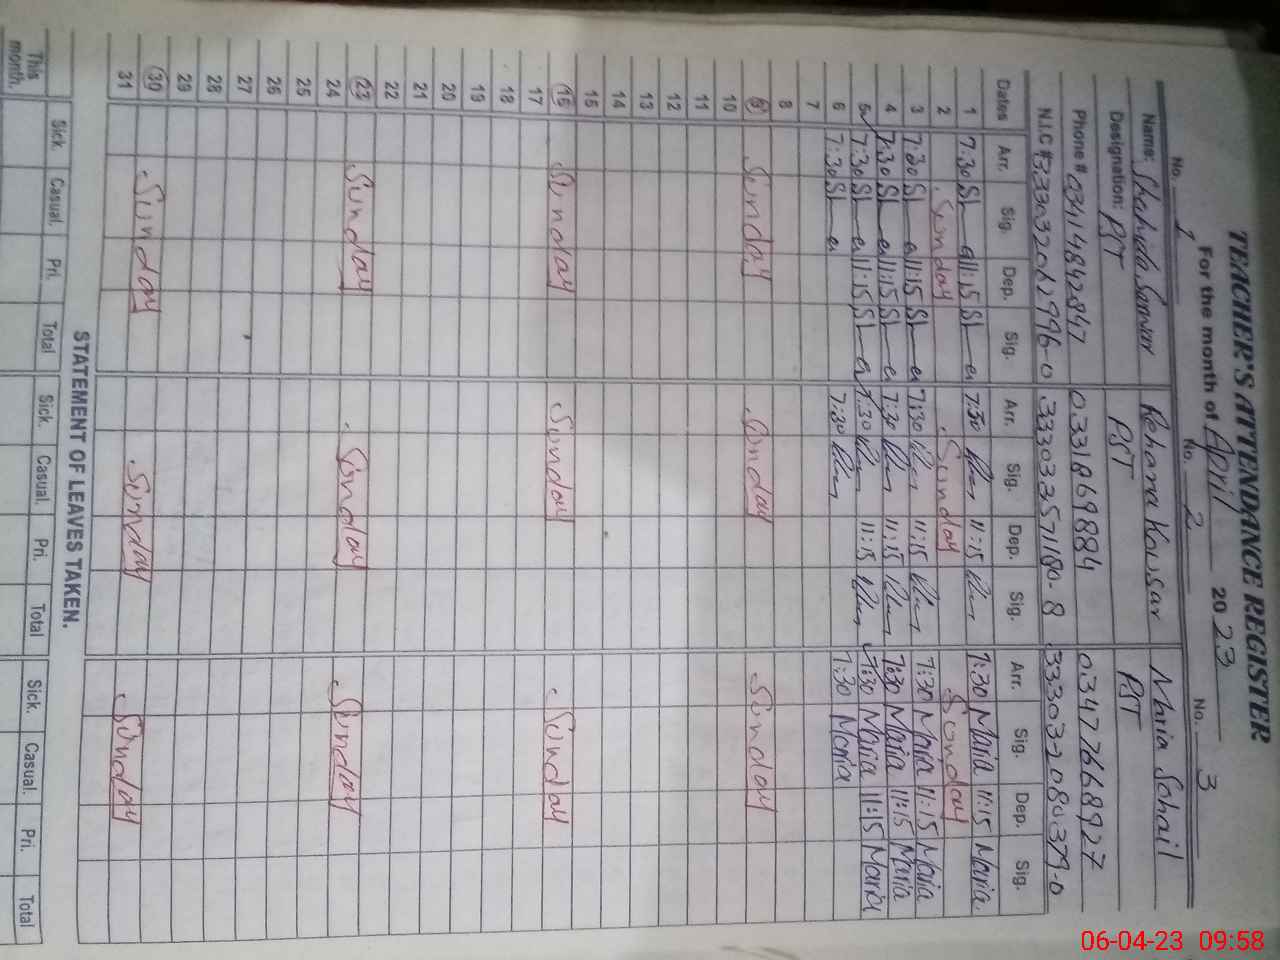 TEACHER'S ATTENDANCE REGISTER
For the month of April 2023
No. 1 No. 2 No. 3
Name: Shahida Sarwar Rehana Kousar Maria Sohail
Designation: PST PST PST
Phone # 03414842847 0331869884 03477668927
N.I.C #
Dates Arr. Sig. Dep. Sig. Arr. Sig. Dep. Sig. Arr. Sig. Dep. Sig.
1 7:30 11:15 7:30 11:15 7:30 Maria 11:15 Maria
2 Sunday Sunday Sunday
3 7:30 11:15 7:30 11:15 7:30 Maria 11:15 Maria
4 7:30 11:15 7:30 11:15 7:30 Maria 11:15 Maria
5 7:30 11:15 7:30 11:15 7:30 Maria 11:15 Maria
6 7:30 7:30 7:30 Maria
7
8
9 Sunday Sunday Sunday
10
11
12
13
14
15
16 Sunday Sunday Sunday
17
18
19
20
21
22
23 Sunday Sunday Sunday
24
25
26
27
28
29
30 Sunday Sunday Sunday
31
STATEMENT OF LEAVES TAKEN.
Sick. Casual. Pri. Total Sick. Casual. Pri. Total Sick. Casual. Pri. Total
This month.
06-04-23 09:58